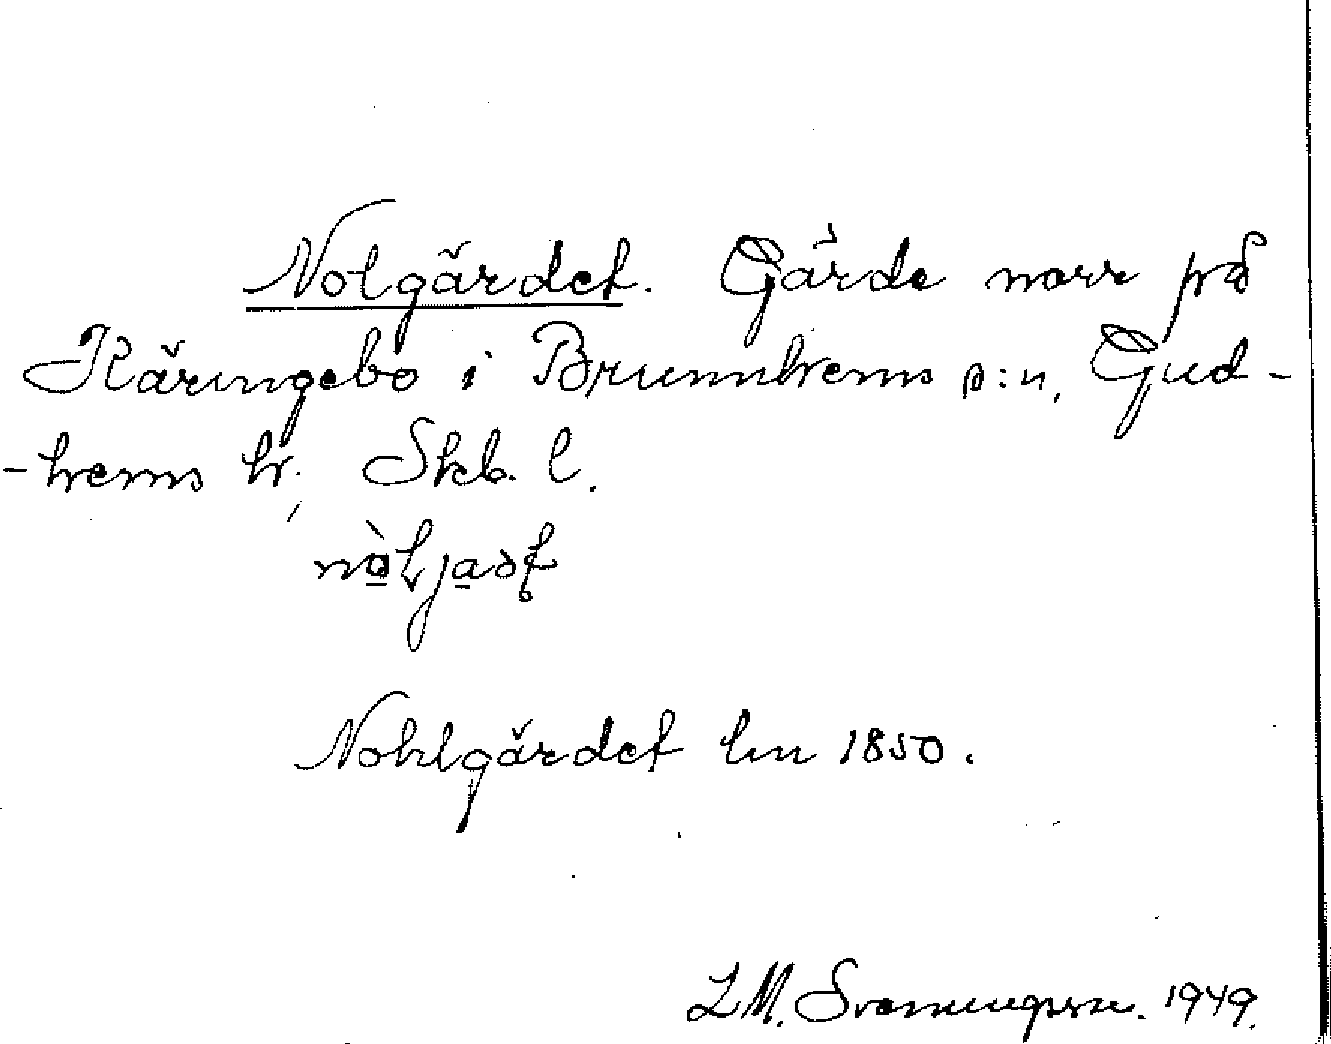 Nolgärdet. Gärde norr på
Käringebo i Brunnhems s:n, Gud-
-hems hr, Skb. l.
Nohlgärdet lm 1850.
L M. Svenungsson. 1949.